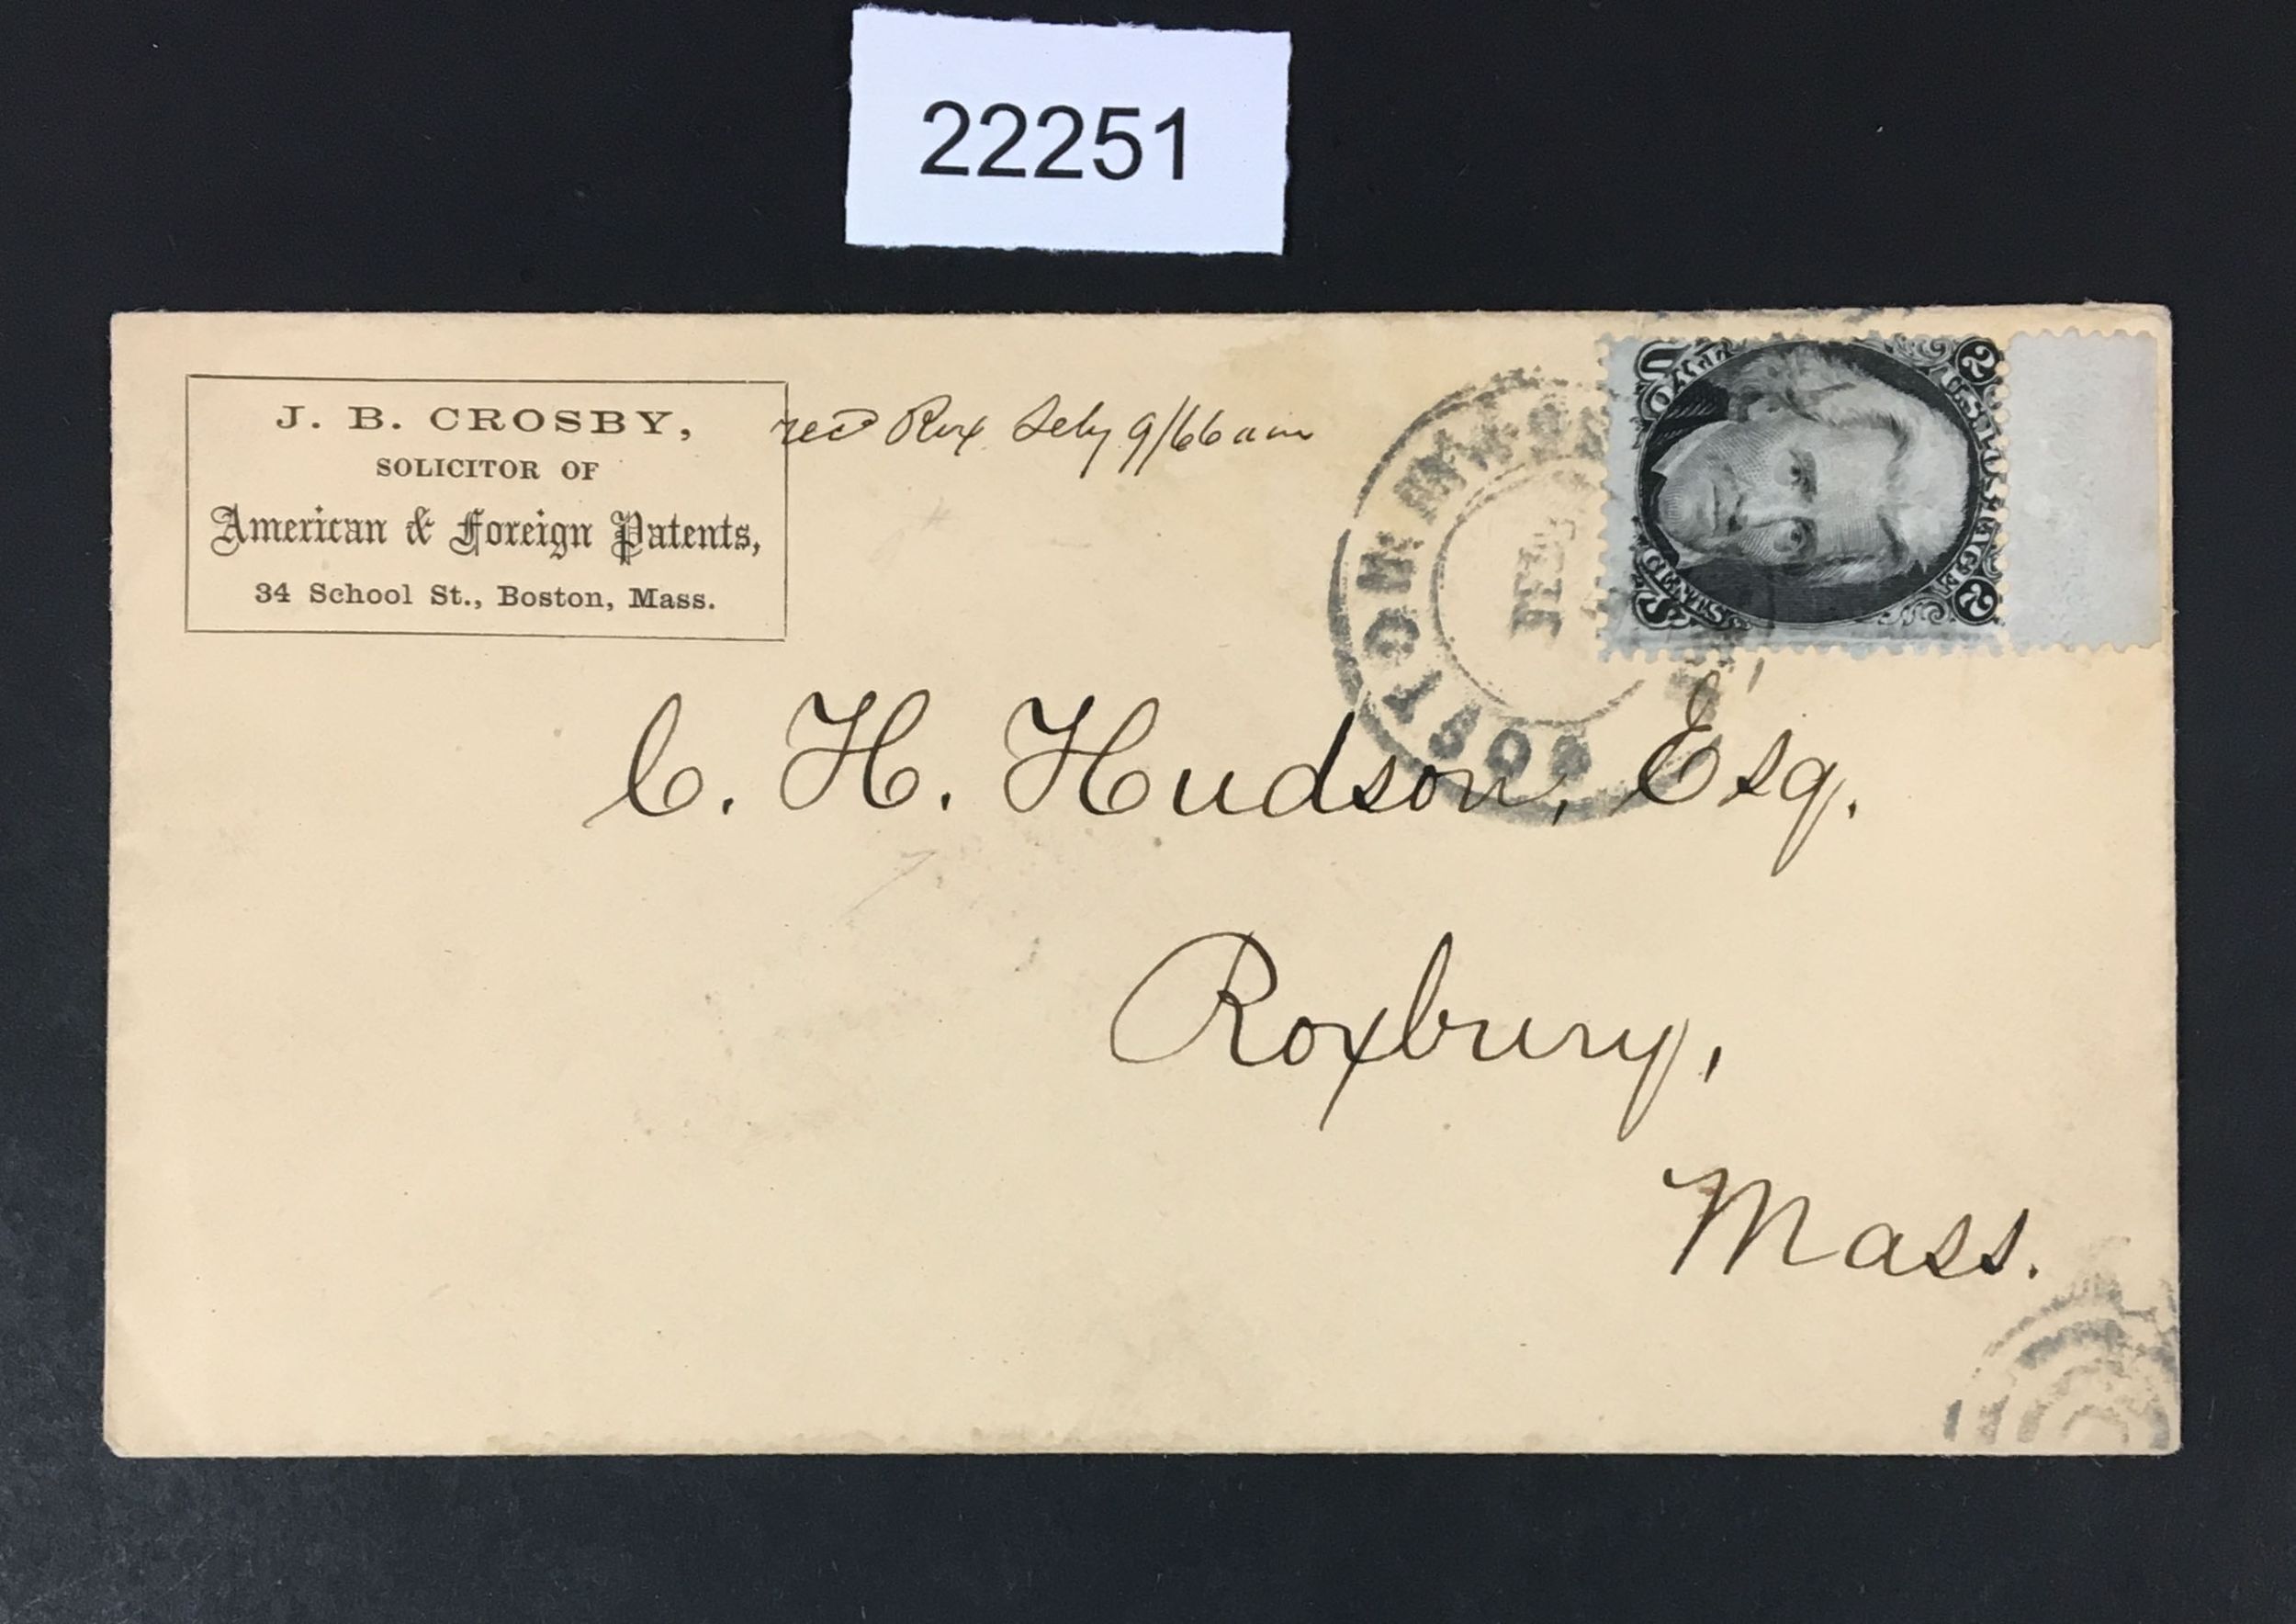 22251
J. B. CROSBY,
SOLICITOR OF
American & Foreign Patents,
34 School St., Boston, Mass.
rec'd Rox Feby 9/66 am
BOSTON
FEB
U.S. POSTAGE
2 2
TWO CENTS
C. H. Hudson, Esq.
Roxbury,
Mass.